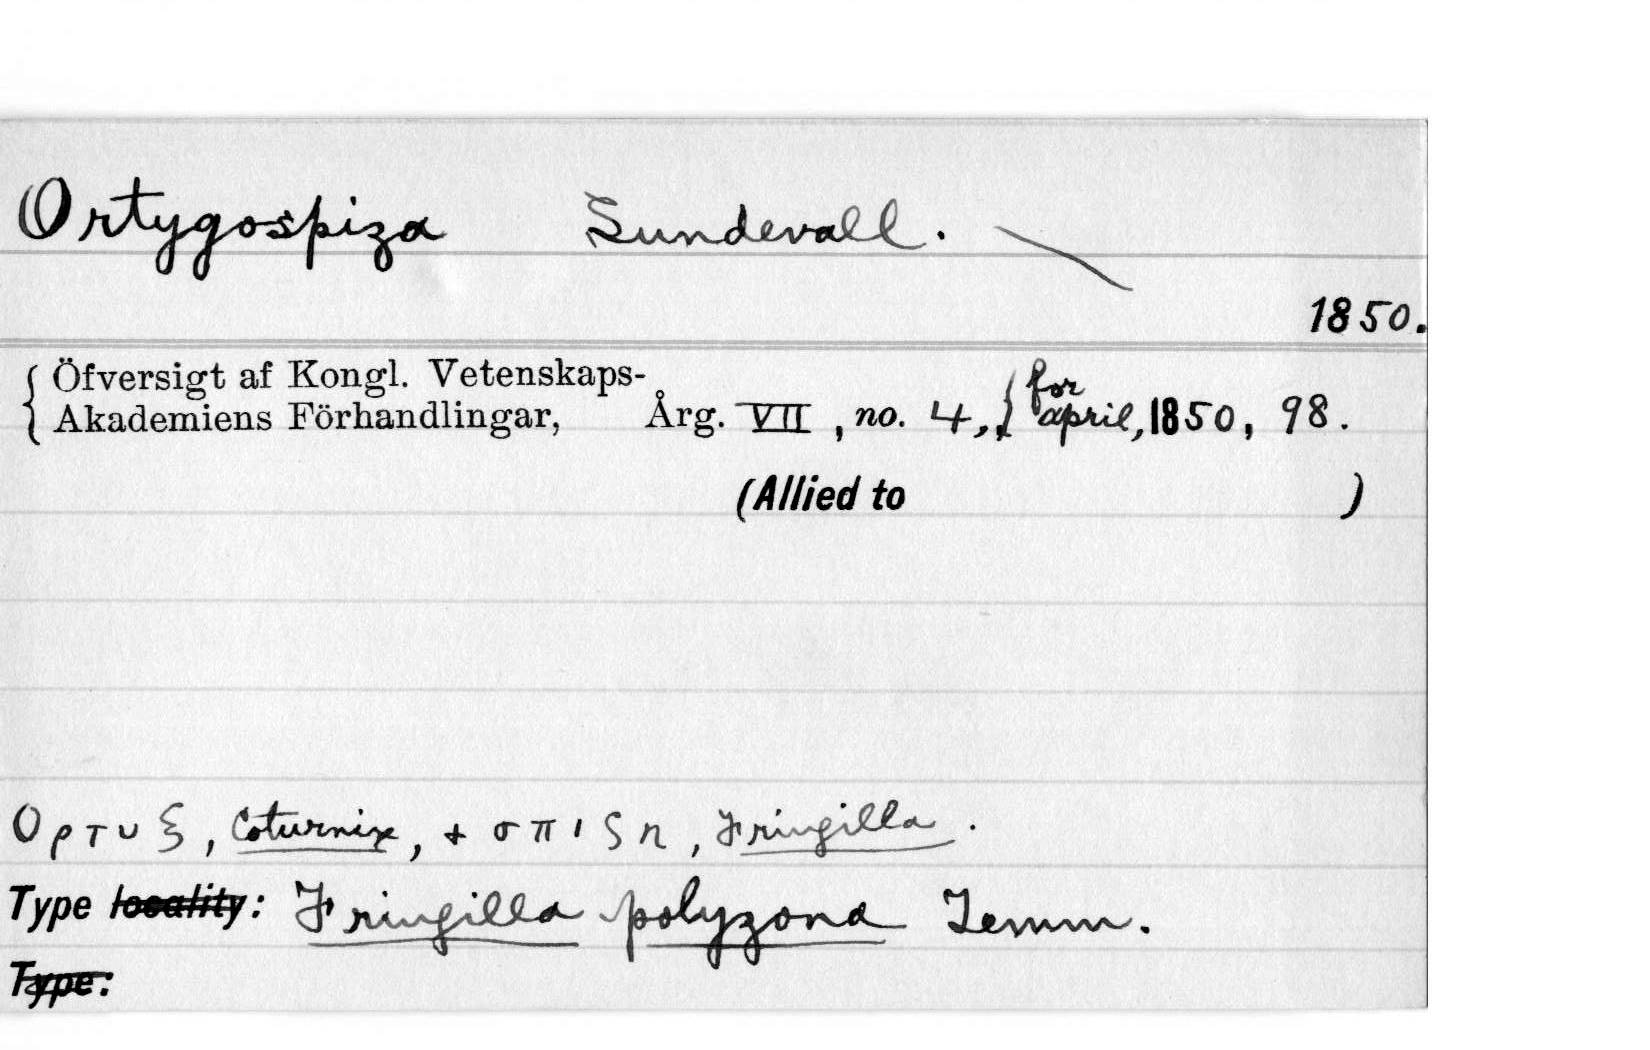 Ortygospiza Sundevall.
1850.
{ Öfversigt af Kongl. Vetenskaps-
Akademiens Förhandlingar, Årg. VII, no. 4, } for april, 1850, 98.
(Allied to )
Ορτυξ, Coturnix, + σπιζη, Fringilla.
Type locality: Fringilla polyzona Temm.
Type: